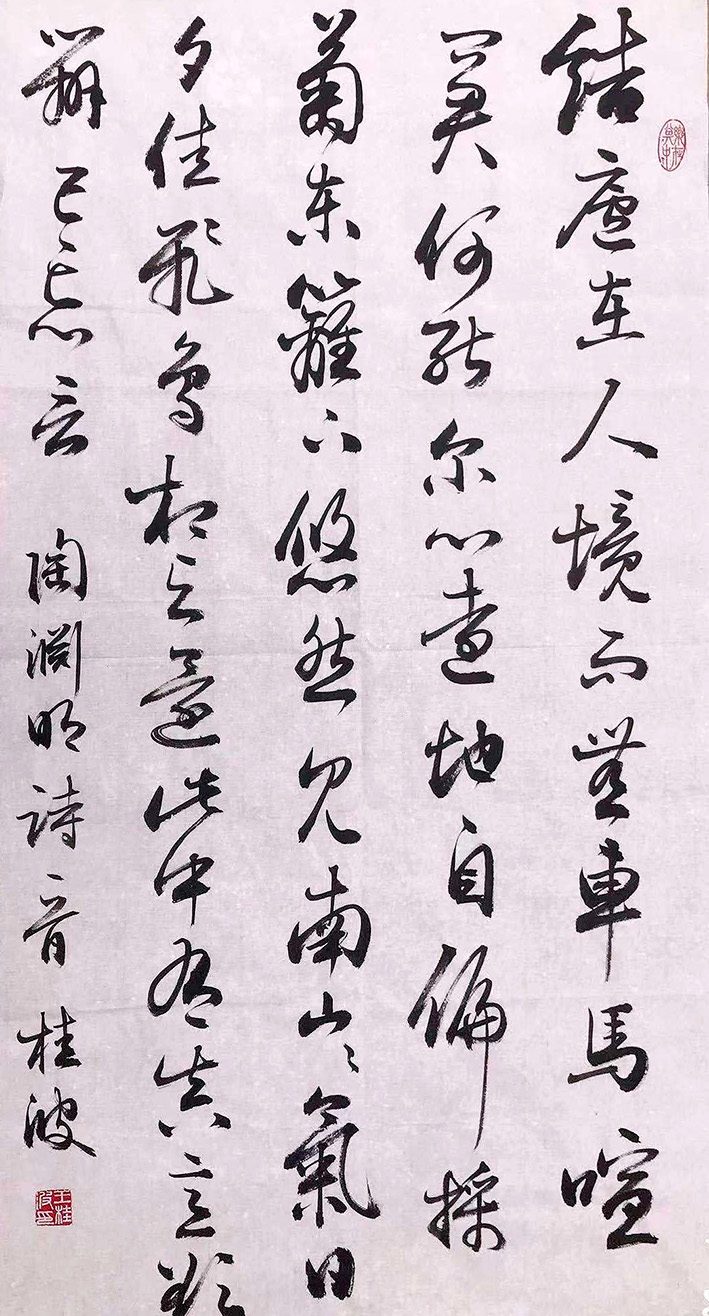 結廬在人境而無車馬喧
问君何能尔心遠地自偏採
菊東籬下悠然見南山〻氣日
夕佳飛鳥相与還此中有真意欲
辨已忘言 陶淵明詩一首 桂波
王桂波印